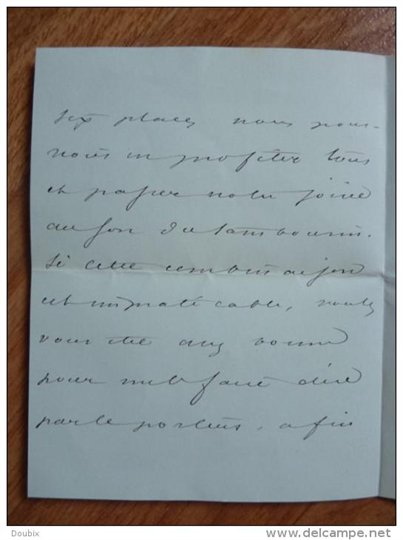 six places nous pour-
rions en profiter tous
et passer notre soirée
au son du tambourin.
Si cette combinaison
est impraticable, voulez
vous être assez bonne
pour me le faire dire
par le porteur, afin
Doubix
delcampe.net